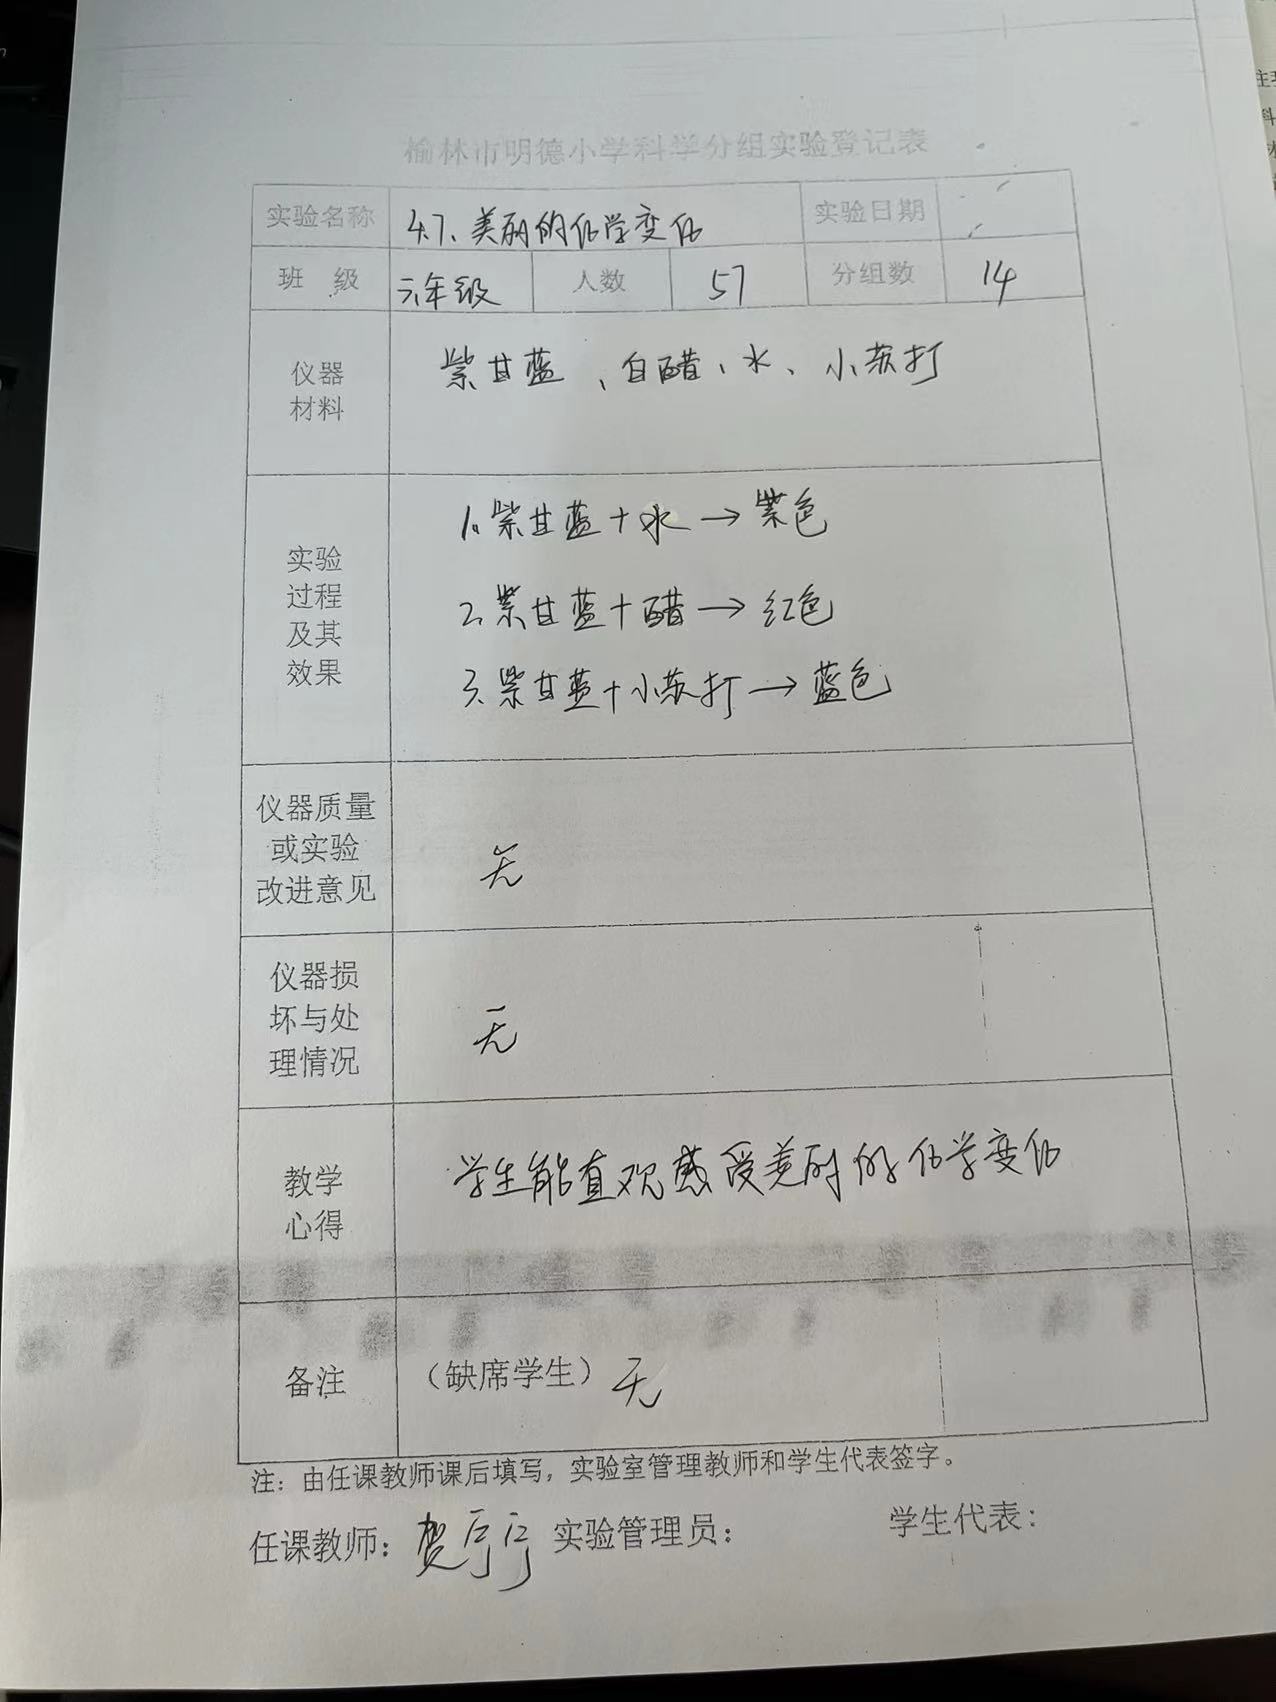 榆林市明德小学科学分组实验登记表
实验名称 4.7、美丽的化学变化 实验日期
班 级 六年级 人数 57 分组数 14
仪器
材料
紫甘蓝、白醋、水、小苏打
实验
过程
及其
效果
1.紫甘蓝+水→紫色
2.紫甘蓝+醋→红色
3.紫甘蓝+小苏打→蓝色
仪器质量
或实验
改进意见
无
仪器损
坏与处
理情况
无
教学
心得
学生能直观感受美丽的化学变化
备注
(缺席学生) 无
注：由任课教师课后填写，实验室管理教师和学生代表签字。
任课教师：贺 实验管理员： 学生代表：